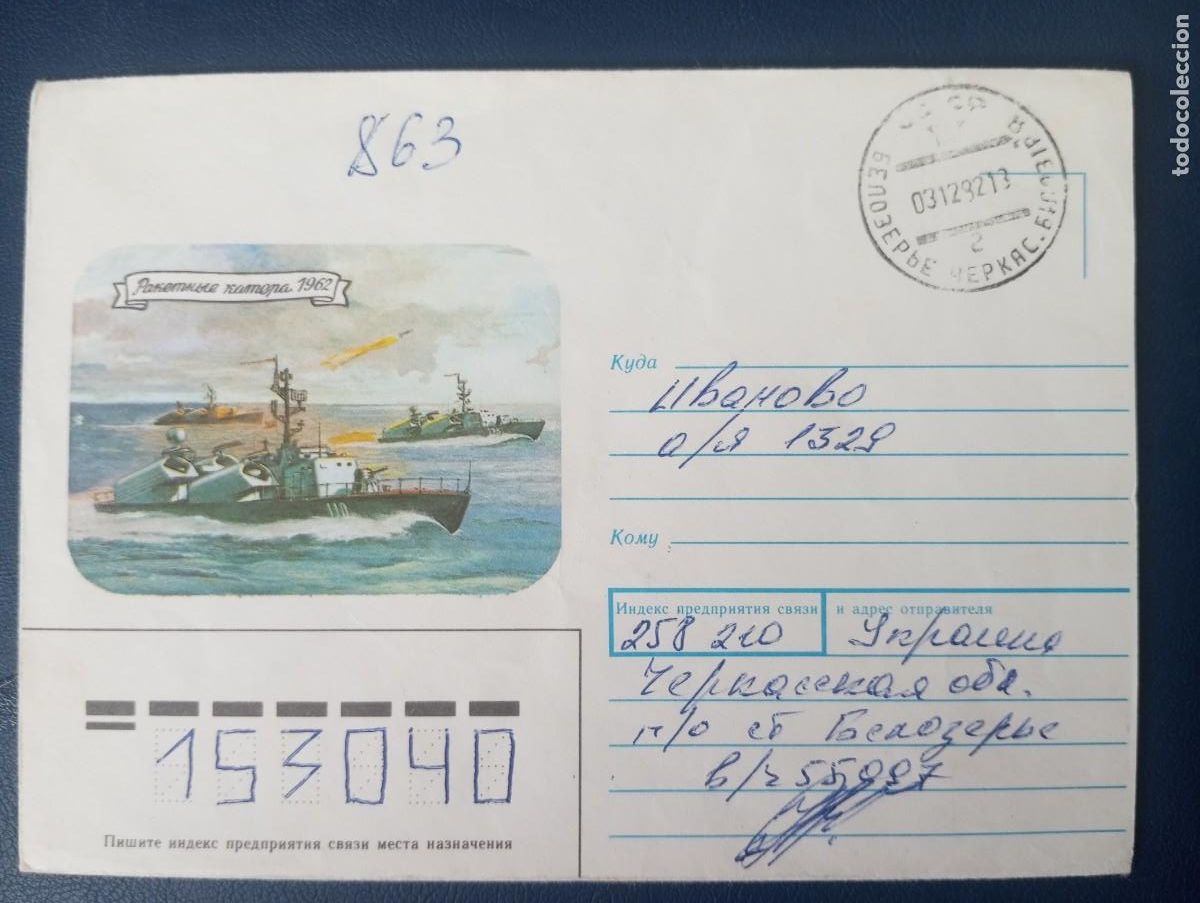 863
СССР
БЕЛОЗЕРЬЕ ЧЕРКАС.
031292 13
2
Ракетные катера 1962
110
Куда
Иваново
а/я 1329
Кому
Индекс предприятия связи и адрес отправителя
258 210 Украина
Черкасская обл.
п/о ст Белозерье
в/ч
153040
Пишите индекс предприятия связи места назначения
todocoleccion